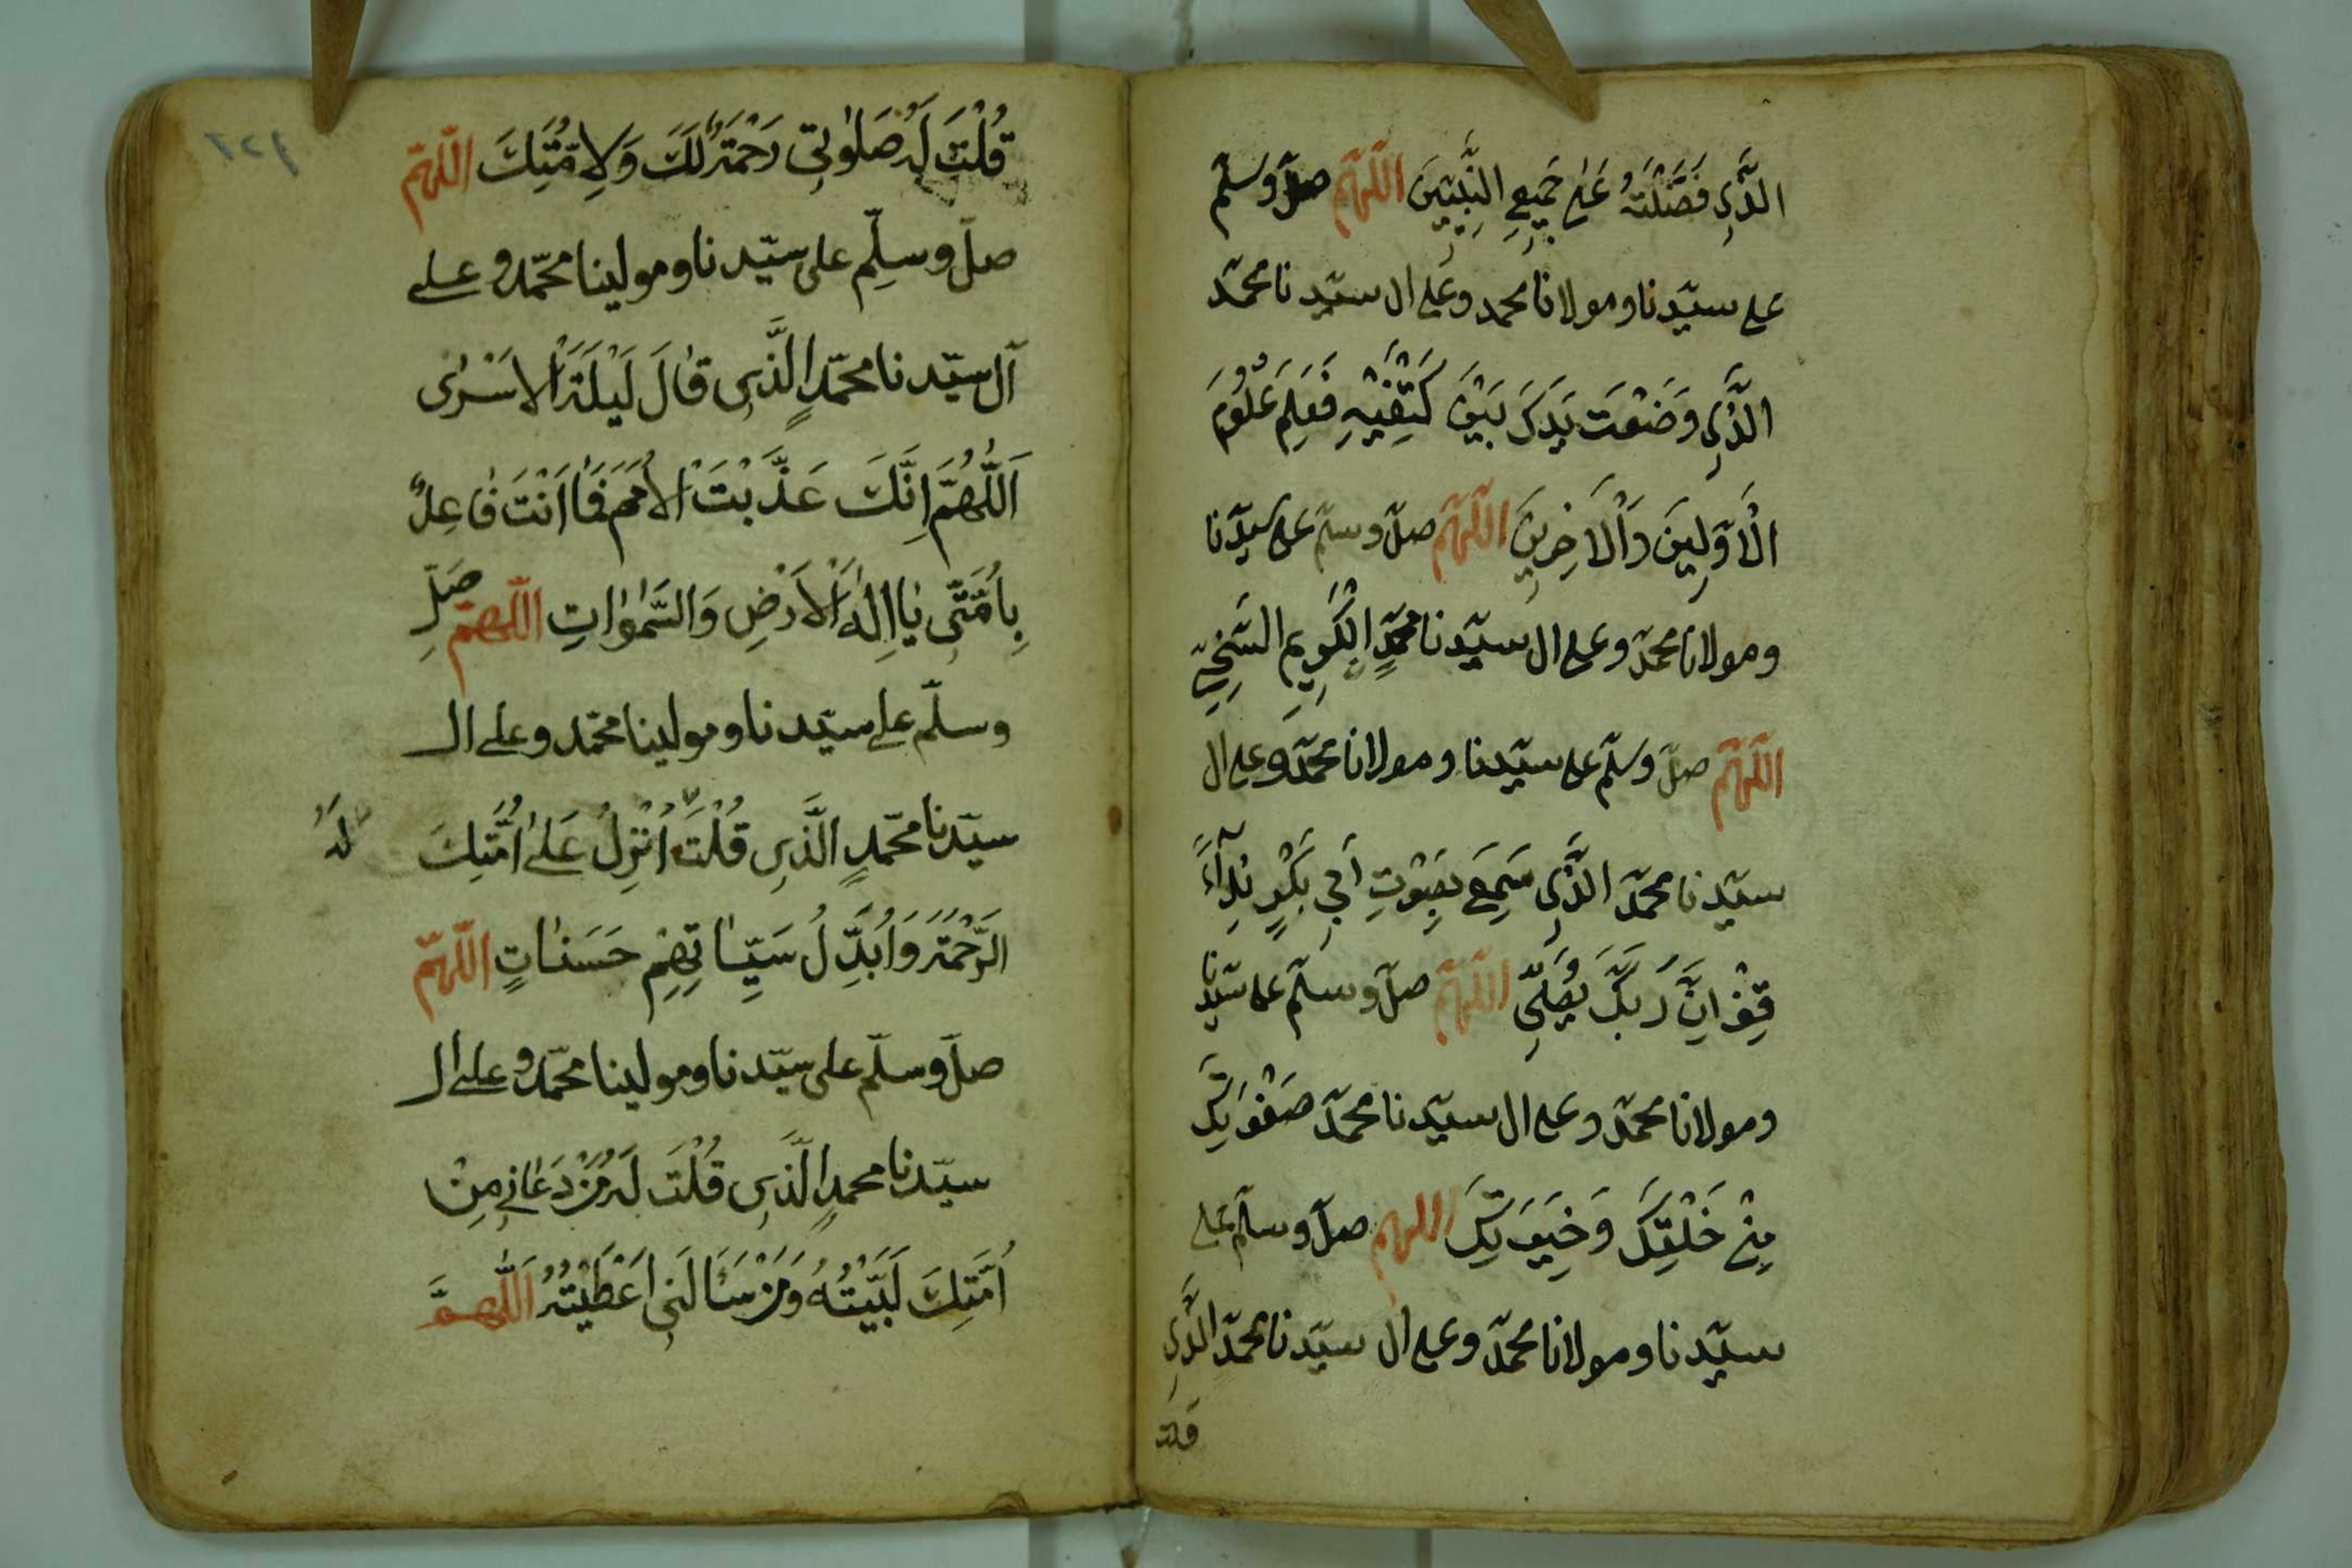 الَّذِي فَضَّلْتَهُ عَلَى جَمِيعِ النَّبِيِّينَ اللّٰهمّ صلّ وسلّم
على سيّدنا ومولانا محمد وعلى ال سيّدنا محمّد
الَّذِي وَضَعْتَ يَدَكَ بَيْنَ كَتِفَيْهِ فَعَلِمَ عُلُومَ
الْاَوَّلِينَ وَالْاَخِرِينَ اللّٰهمّ صلّ وسلّم على سيّدنا
ومولانا محمّد وعلى ال سيّدنا محمّدٍ الْكَرِيمِ السَّخِيِّ
اللّٰهمّ صلّ وسلّم على سيّدنا ومولانا محمّد وعلى ال
سيّدنا محمّد الَّذِي سَمِعَ بِصَوْتِ اَبِي بَكْرٍ نِدَآءً
قِفْ اِنَّ رَبَّكَ يُصَلِّي اللّٰهمّ صلّ وسلّم على سيّدنا
ومولانا محمّد وعلى ال سيّدنا محمّد صَفْوَتِكَ
مِنْ خَلْقِكَ وَخِيَرَتِكَ اللهم صلّ وسلّم على
سيّدنا ومولانا محمّد وعلى ال سيّدنا محمّد الَّذِي
قلت
قُلْتَ لَهُ صَلٰوتِي رَحْمَةٌ لَكَ وَلِاُمَّتِكَ اللّٰهمّ
صلّ وسلِّم على سيّدنا ومولينا محمّد وعلى
آل سيّدنا محمّدٍ الَّذِي قٰالَ لَيْلَةَ الْاَسْرٰى
اَللّٰهُمَّ اِنَّكَ عَذَّبْتَ الْاُمَمَ فَمٰا اَنْتَ فٰاعِلٌ
بِاُمَّتِي يٰا اِلٰهَ الْاَرْضِ وَالسَّمٰوٰاتِ اللّٰهمّ صَلِّ
وسلّم على سيّدنا ومولينا محمّد وعلى ال
سيّدنا محمّدٍ الَّذِي قُلْتَ اُنْزِلُ عَلٰى اُمَّتِكَ
لَهُ
الرَّحْمَةَ وَاُبَدِّلُ سَيِّـٰٔاتِهِمْ حَسَنٰاتٍ اللّٰهمّ
صلّ وسلّم على سيّدنا ومولينا محمّد وعلى ال
سيّدنا محمدٍ الَّذِي قُلْتَ لَهُ مَنْ دَعٰانِي مِنْ
اُمَّتِكَ لَبَّيْتُهُ وَمَنْ سَاَلَنِي اَعْطَيْتُهُ اَللّٰهمَّ